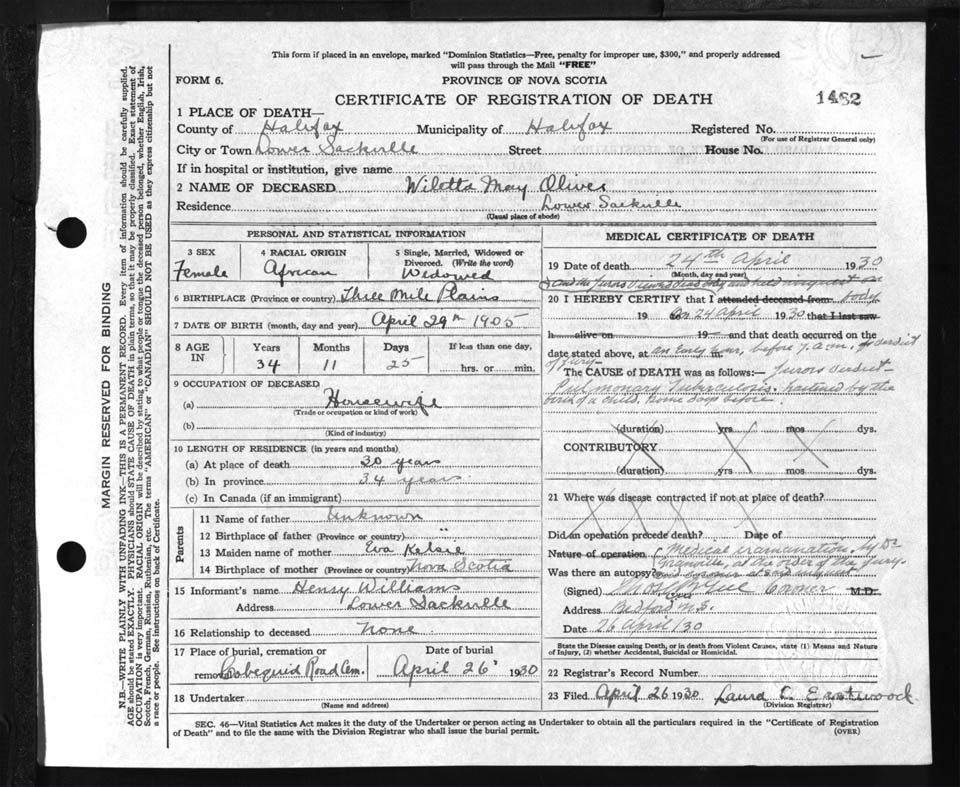 This form if placed in an envelope, marked "Dominion Statistics—Free, penalty for improper use, $300," and properly addressed
will pass through the Mail "FREE"
FORM 6.
PROVINCE OF NOVA SCOTIA
CERTIFICATE OF REGISTRATION OF DEATH
1482
1 PLACE OF DEATH—
County of Halifax Municipality of Halifax Registered No.
(For use of Registrar General only)
City or Town Lower Sackville Street House No.
If in hospital or institution, give name
2 NAME OF DECEASED Wilotta May Oliver
Residence Lower Sackville
(Usual place of abode)
PERSONAL AND STATISTICAL INFORMATION
3 SEX Female
4 RACIAL ORIGIN African
5 Single, Married, Widowed or Divorced. (Write the word) Widowed
6 BIRTHPLACE (Province or country) Three Mile Plains
7 DATE OF BIRTH (month, day and year) April 29th 1905
8 AGE IN Years Months Days If less than one day,
34 11 25 hrs. or min.
9 OCCUPATION OF DECEASED
(a) Housewife
(Trade or occupation or kind of work)
(b)
(Kind of industry)
10 LENGTH OF RESIDENCE (in years and months)
(a) At place of death 30 years
(b) In province 34 years
(c) In Canada (if an immigrant)
Parents
11 Name of father Unknown
12 Birthplace of father (Province or country)
13 Maiden name of mother Eva Kelsie
14 Birthplace of mother (Province or country) Nova Scotia
15 Informant's name Henry Williams
Address Lower Sackville
16 Relationship to deceased None
17 Place of burial, cremation or removal Cobequid Road Cem.
Date of burial April 26 1930
18 Undertaker
(Name and address)
MEDICAL CERTIFICATE OF DEATH
19 Date of death 24th April 1930
(Month, day and year)
I and the Jurors viewed dead body and held inquest on body
20 I HEREBY CERTIFY that I attended deceased from
19 on 24 April 1930 that I last saw
h alive on 19 and that death occurred on the
date stated above, at an early hour, before 7 a.m. verdict
of Jury
The CAUSE OF DEATH was as follows:— Jurors verdict—
Pulmonary Tuberculosis. hastened by the
birth of a child some days before.
(duration) yrs mos dys.
CONTRIBUTORY
(duration) yrs mos dys.
21 Where was disease contracted if not at place of death?
Did an operation precede death? Date of
Nature of operation Medical examination by Dr
at the order of the Jury.
Was there an autopsy
(Signed) Coroner M.D.
Address Bedford N.S.
Date 26 April /30
State the Disease causing Death, or in death from Violent Causes, state (1) Means and Nature
of Injury, (2) whether Accidental, Suicidal or Homicidal.
22 Registrar's Record Number
23 Filed April 26 1930 Laura C. Eastwood
(Division Registrar)
SEC. 46—Vital Statistics Act makes it the duty of the Undertaker or person acting as Undertaker to obtain all the particulars required in the "Certificate of Registration
of Death" and to file the same with the Division Registrar who shall issue the burial permit.
(OVER)
MARGIN RESERVED FOR BINDING
N.B.—WRITE PLAINLY WITH UNFADING INK—THIS IS A PERMANENT RECORD. Every item of information should be carefully supplied.
AGE should be stated EXACTLY. PHYSICIANS should STATE CAUSE OF DEATH in plain terms, so that it may be properly classified. Exact statement of
OCCUPATION is very important. RACIAL ORIGIN will be described by stating to what people or tongue the deceased person belonged, whether English, Irish,
Scotch, French, German, Russian, Ruthenian, etc. The terms "AMERICAN" or "CANADIAN" SHOULD NOT BE USED as they express citizenship but not
a race or people. See instructions on back of Certificate.